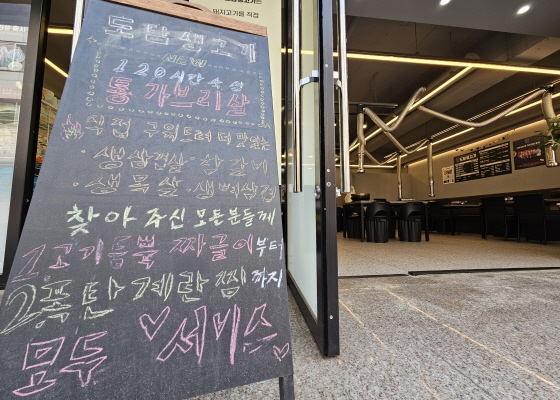 돼지고기를 직접
토담생고기
NEW
120시간숙성
통가브리살
직접 구워드려 더 맛있는
·생삼겹살·항정살
·생목살·생삼겹
찾아 주신 모든분들께
1고기듬뿍 짜글이부터
2폭탄계란찜 까지
모두♡서비스♡